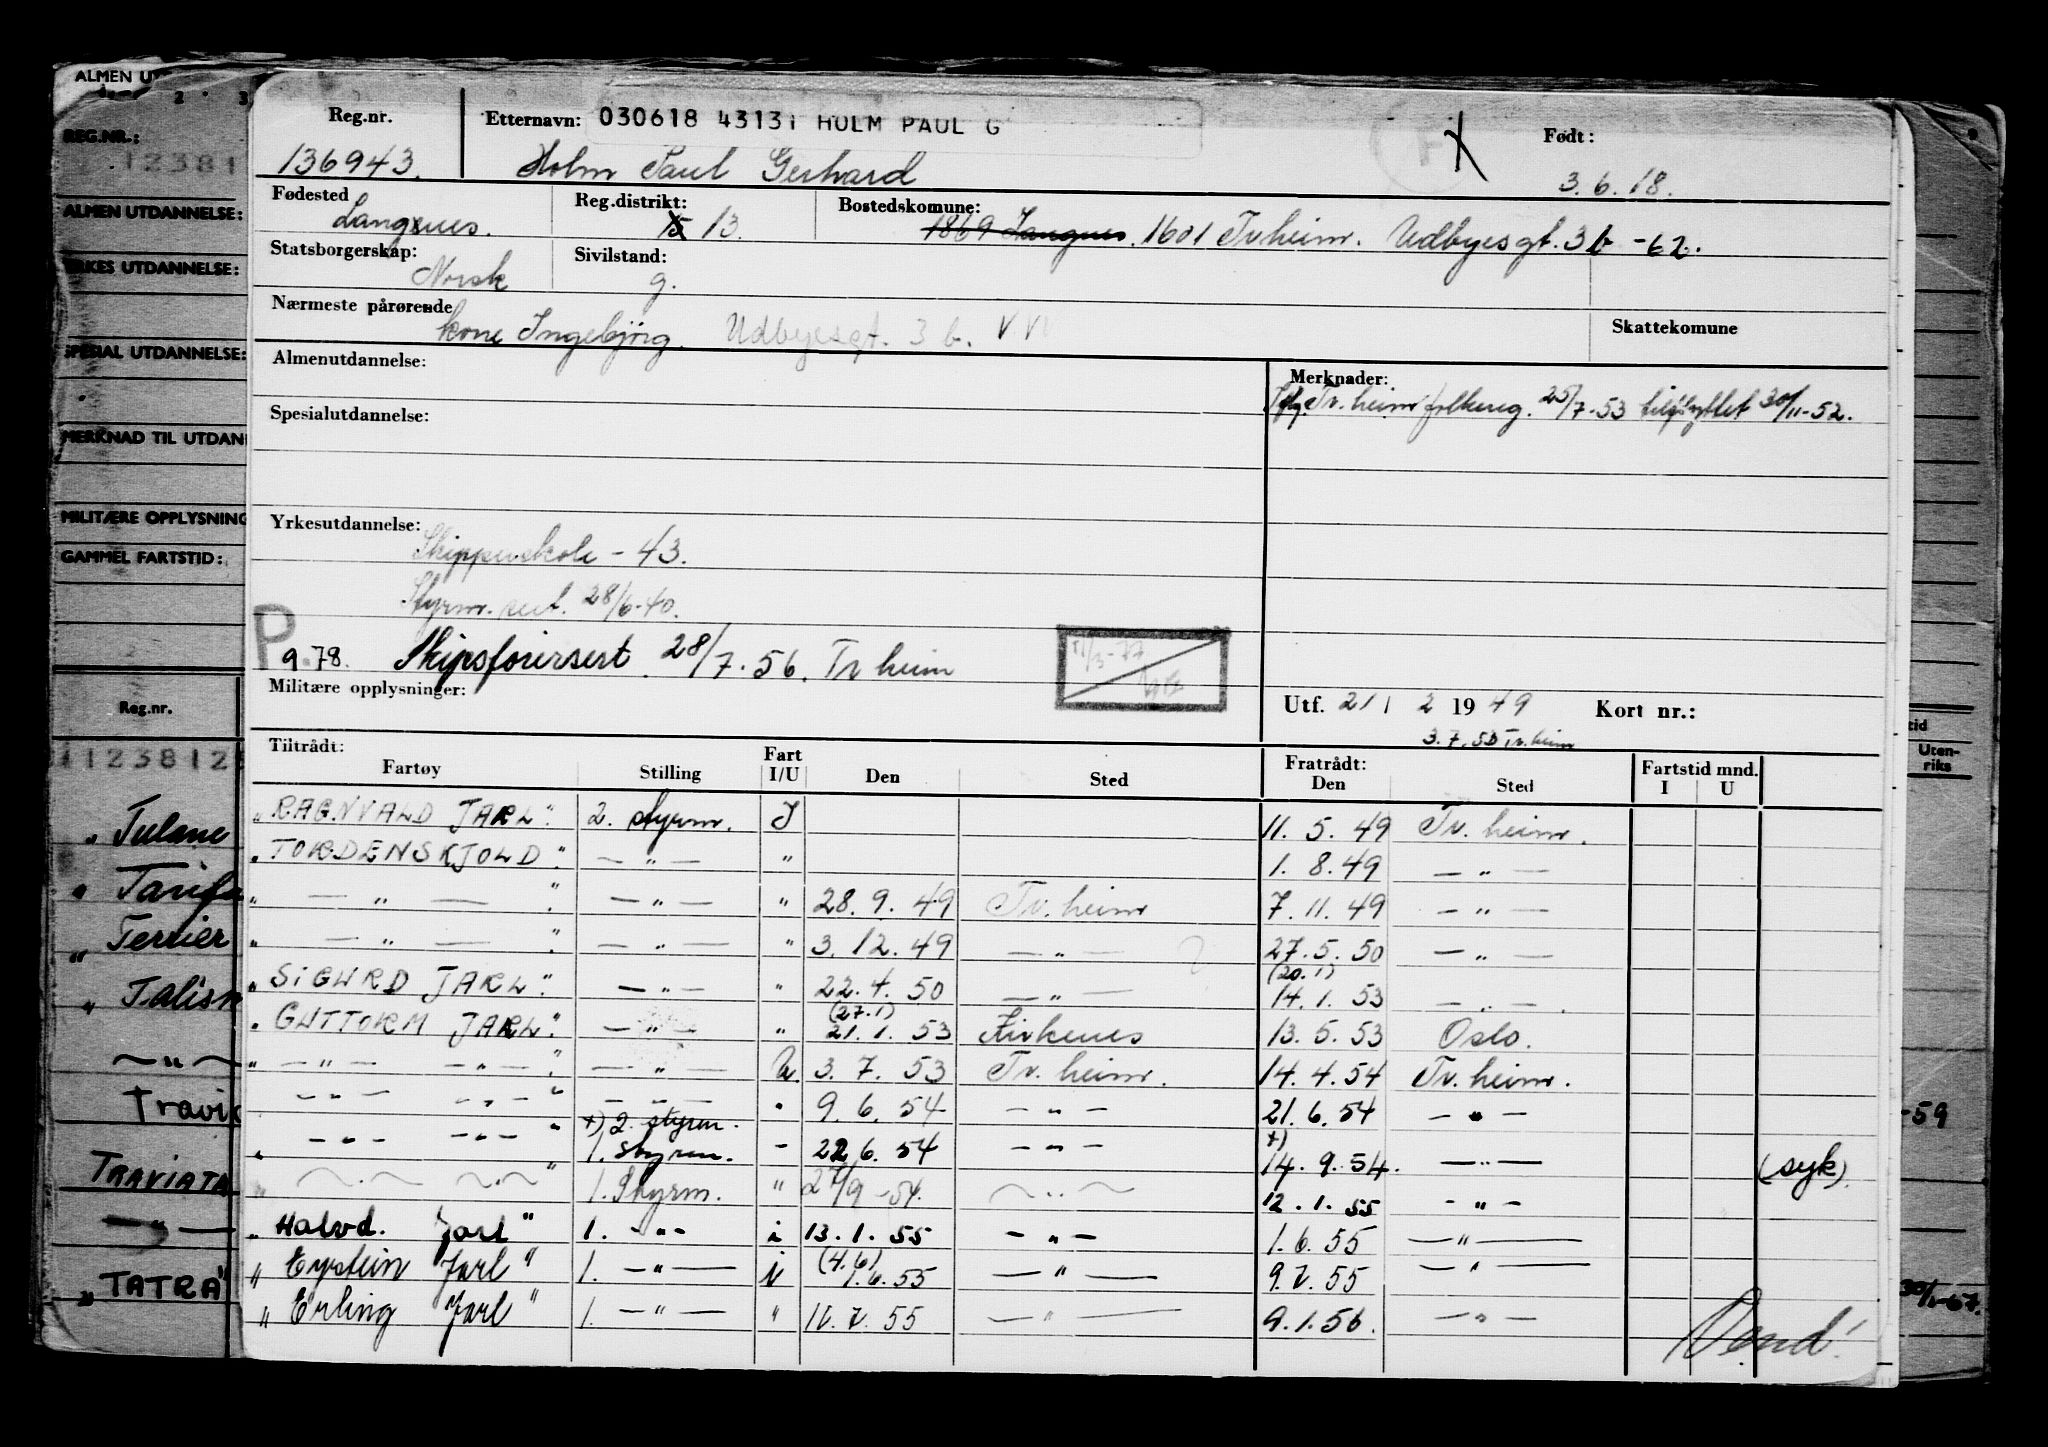 ALMEN UT
2 3
REG.NR.:
12381
ALMEN UTDANNELSE:
YRKES UTDANNELSE:
SPESIAL UTDANNELSE:
MERKNAD TIL UTDAN
MILITÆRE OPPLYSNING
GAMMEL FARTSTID:
Reg.nr.
1123812
" Tulane
" Tarifa
" Terrier
" Talism
— " —
Travi
TRAVIATA
— " —
" TATRA"
Reg.nr. Etternavn: 030618 43131 HOLM PAUL G F X Født:
136943. Holm Paul Gerhard 3.6.18.
Fødested Reg.distrikt: Bostedskomune:
Langnes. 15 13. 1869 Langnes. 1601 Tr.heim. Udbyesgt. 3b -62.
Statsborgerskap: Sivilstand:
Norsk g.
Nærmeste pårørende Skattekomune
kone Ingebjørg. Udbyesgt. 3 b.
Almenutdannelse: Merknader:
Tr.heim folkereg. 25/7-53 tilflyttet 30/11-52.
Spesialutdannelse:
Yrkesutdannelse:
Skipperskole - 43.
Styrm. sert. 28/6-40.
P.
9.78. Skipsførersert. 28/7.56. Tr heim
11/3-77
Militære opplysninger: Utf. 21 / 2 1949 Kort nr.:
3.7.53 Tr.heim
Tiltrådt: Fart Fratrådt: Fartstid mnd.
Fartøy Stilling I/U Den Sted Den Sted I U
"RAGNVALD JARL". 2. styrm. I 11. 5. 49 Tr. heim.
"TORDENSKJOLD". — " — " 1. 8. 49 — " —
" — " — ". — " — " 28. 9. 49 Tr. heim 7. 11. 49 — " —
" — " — ". — " — " 3. 12. 49 — " — 27. 5. 50 — " —
"SIGURD JARL". — " — " 22. 4. 50 — " — (20.1) 14. 1. 53 — " —
"GUTTORM JARL". — " — " (27.1) 21. 1. 53 Kirkenes 13. 5. 53 Oslo.
" — " — — " — ". — " — U. 3. 7. 53 Tr. heim. 14. 4. 54 Tr. heim.
— " — — " — " — " — " 9. 6. 54 — " — 21. 6. 54 — " —
" — " — — " — " +) 2. styrm. 1. styrm. - 22 6. 54 — " — +) 14. 9. 54. — " — (syk).
" — " — — " — " 1. Styrm. " 27/9 -54. — " — 12. 1. 55 — " —
" Halvd. Jarl" 1. — " — i 13. 1. 55 — " — 1. 6. 55 — " —
" Eystein Jarl" 1. — " — i (4.6) 1. 6. 55 — " — 9. 7. 55 — " —
" Erling Jarl" 1. — " — " 11. 7. 55 — " — 9. 1. 56. — " —
Vend!
tid
Uten-
riks
-59
30/1-67.